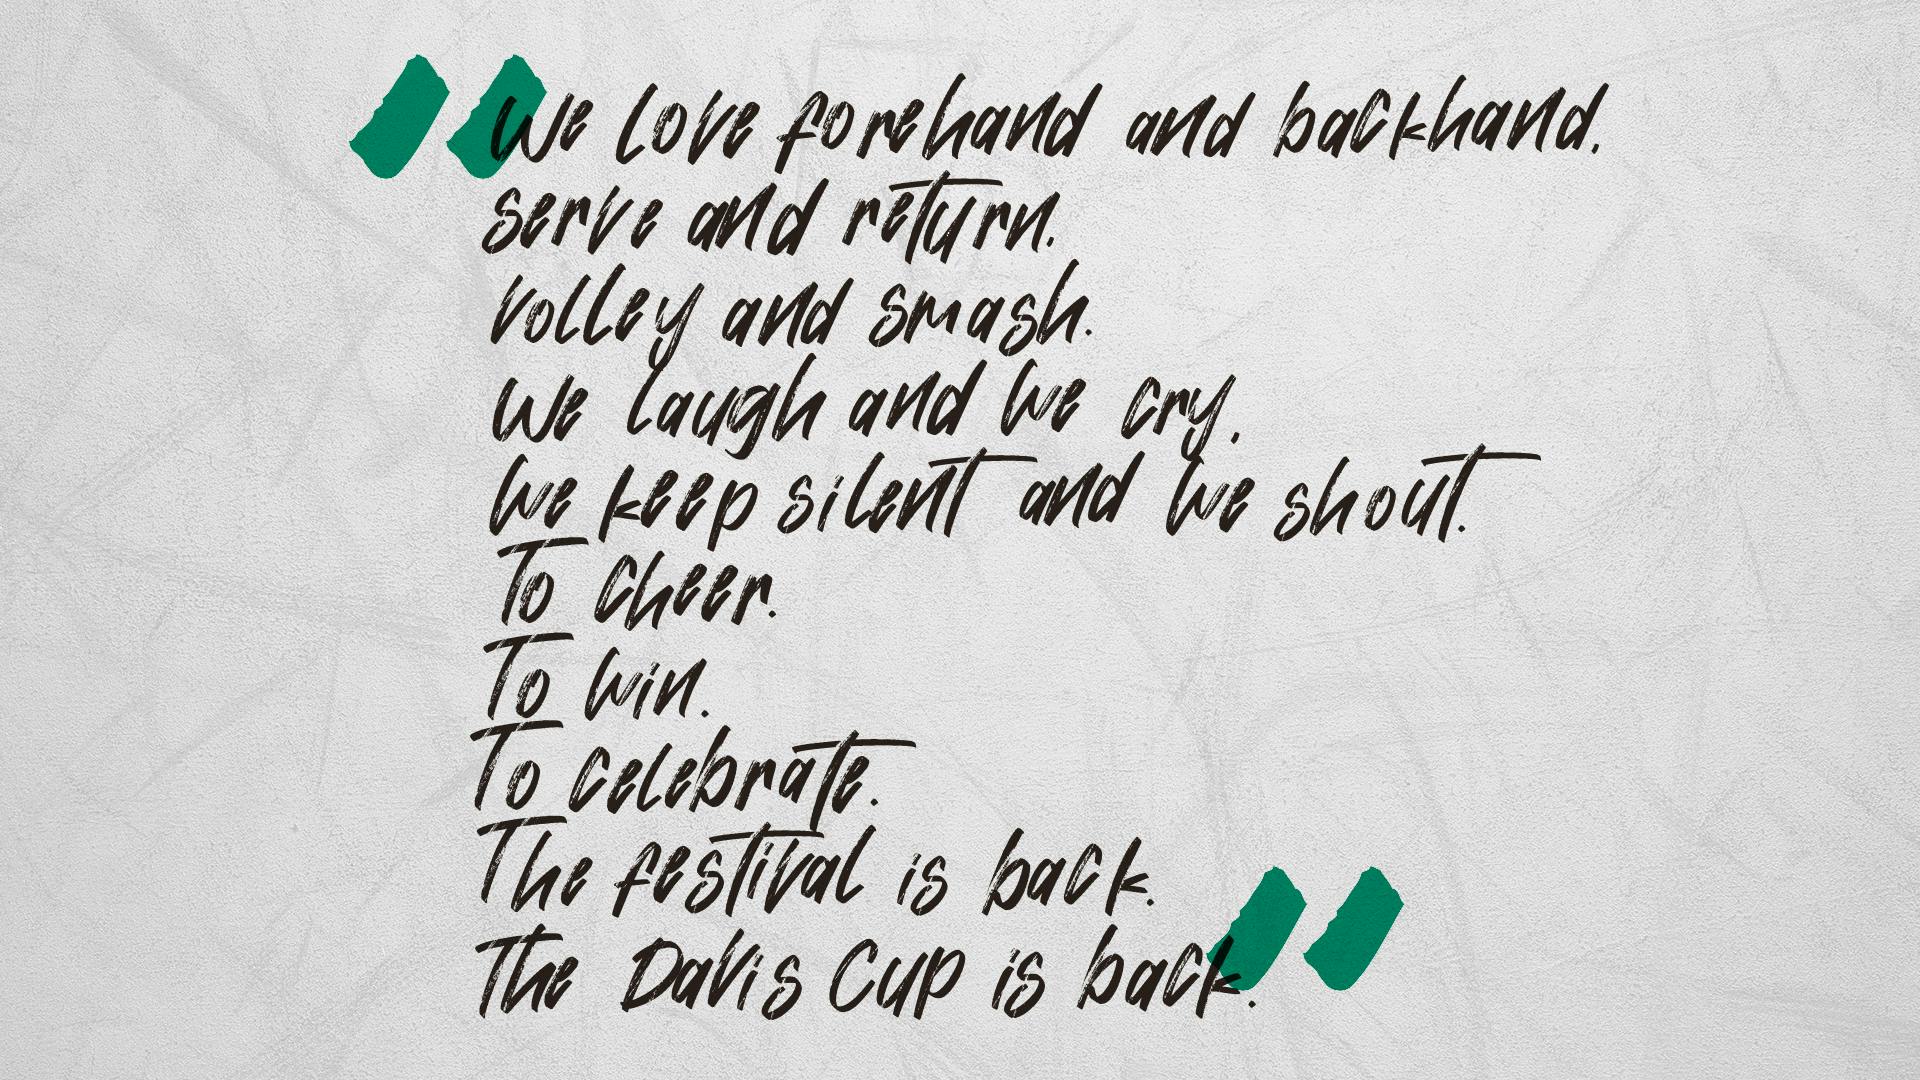 "We love forehand and backhand,
serve and return,
volley and smash.
We laugh and we cry,
we keep silent and we shout.
To cheer.
To win.
To celebrate.
The festival is back.
The Davis Cup is back."